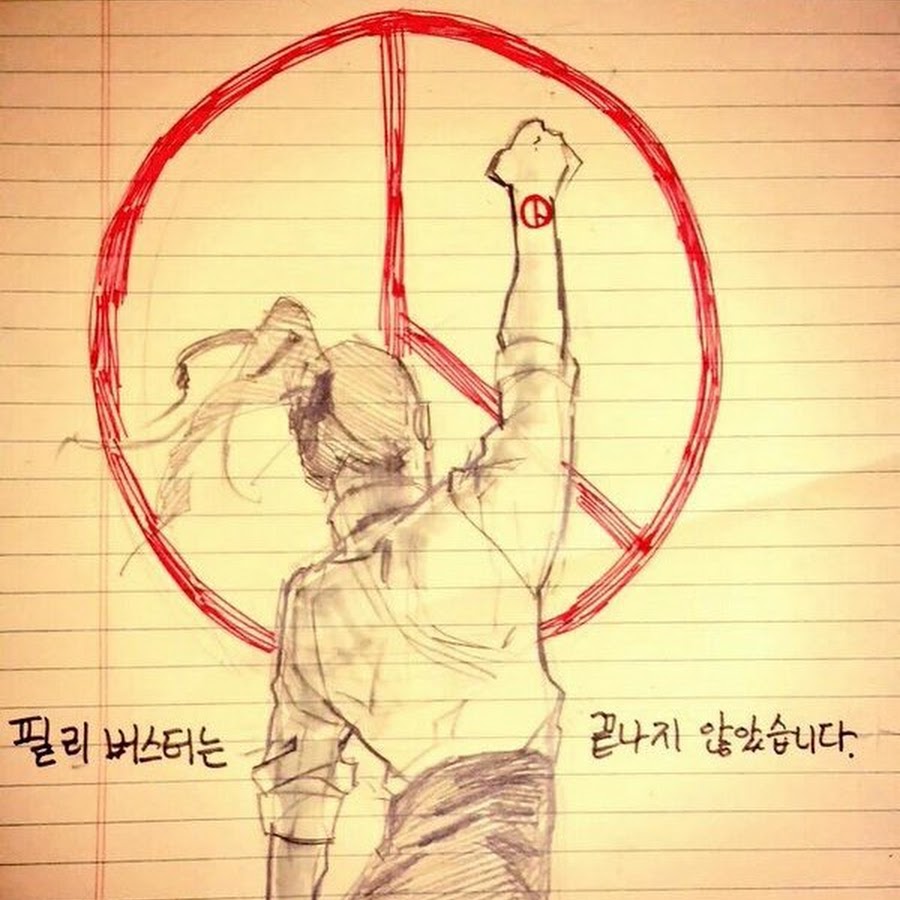 필리 버스터는 끝나지 않았습니다.